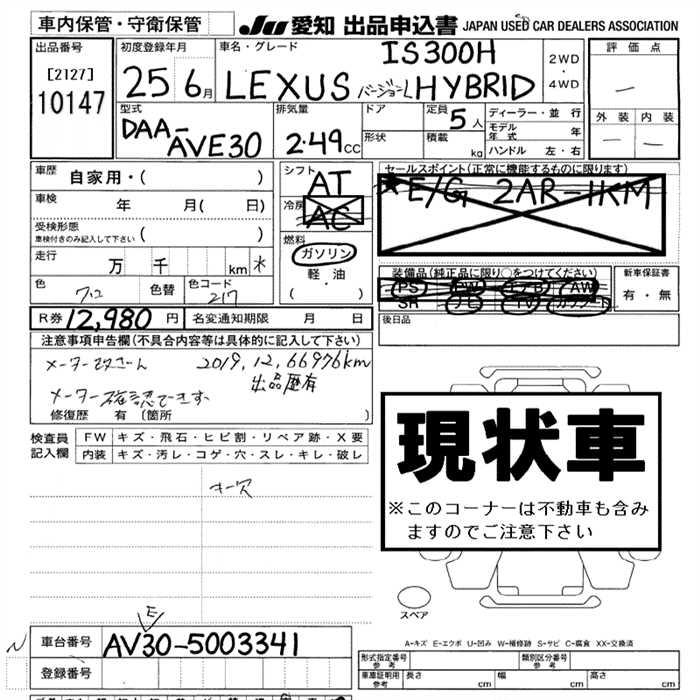 車内保管・守衛保管
JU 愛知 出品申込書 JAPAN USED CAR DEALERS ASSOCIATION
出品番号
[2127]
10147
初度登録年月
25 6月
車名・グレード
IS300H
LEXUS バージョンL HYBRID
2WD
・
4WD
評価点
—
外装 内装
— —
型式
DAA-
AVE30
排気量
2.49cc
ドア
形状
定員 5人
積載 kg
ディーラー・並行
モデル年式 年
ハンドル 左・右
車歴 自家用・( )
車検 年 月( 日)
受検形態
車検付きのみ記入して下さい ( )
走行 万 千 km
色
色替
色コード
217
シフト
AT
冷房
AC
燃料
ガソリン
軽・油
( )
セールスポイント(正常に機能するものに限ります)
★E/G 2AR-1KM
装備品(純正品に限り○をつけてください)
PS PW エアB AW
SR ナビ TV カワシート
新車保証書
有・無
R券 12,980円
名変通知期限 月 日
後日品
注意事項申告欄(不具合内容等は具体的に記入して下さい)
2019,12,66976km
出品歴有
メーター確認できず
修復歴 有 [箇所 ]
検査員
記入欄
FW キズ・飛石・ヒビ割・リペア跡・X要
内装 キズ・汚レ・コゲ・穴・スレ・キレ・破レ
キー欠
現状車
※このコーナーは不動車も含み
ますのでご注意下さい
スペア
A-キズ E-エクボ U-凹み W-補修跡 S-サビ C-腐食 XX-交換済
E
車台番号 AV30-5003341
登録番号
形式指定番号
参考
類別区分番号
参考
車庫証明用
参考
長さ cm
幅 cm
高さ cm